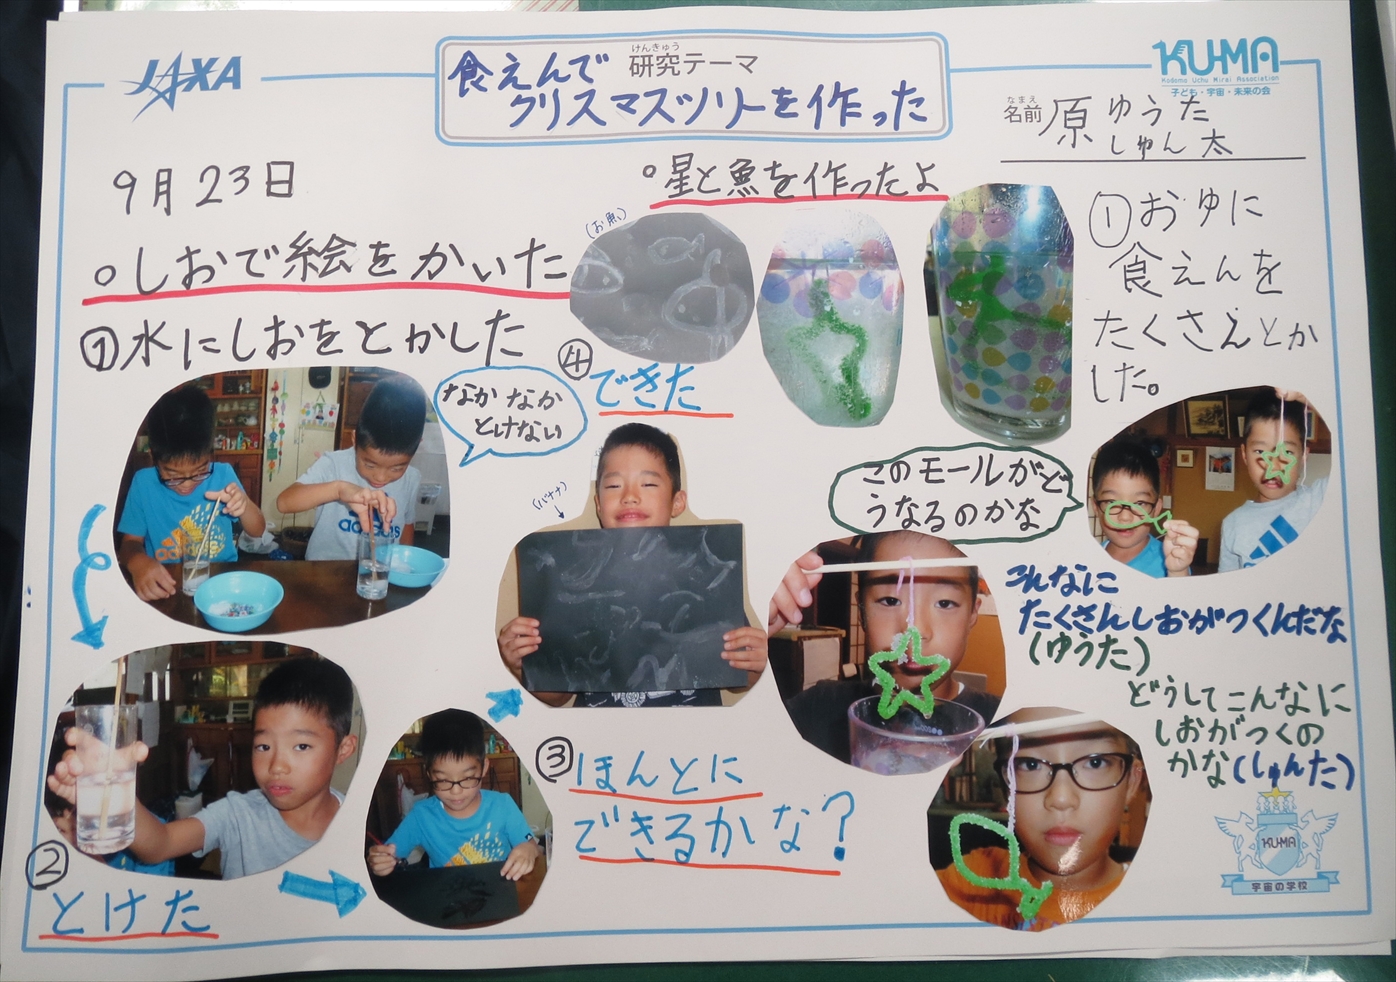 JAXA
けんきゅう
研究テーマ
食えんで
クリスマスツリーを作った
KU-MA
Kodomo Uchu Mirai Association
子ども・宇宙・未来の会
なまえ
名前
原 ゆうた
しゅん太
9月23日
○しおで絵をかいた
①水にしおをとかした
なかなか
とけない
②
とけた
③ほんとに
できるかな?
④
できた
(お魚)
(バナナ)
○星と魚を作ったよ
①おゆに
食えんを
たくさえとか
した。
このモールがど
うなるのかな
こんなに
たくさんしおがつくんだな
(ゆうた)
どうしてこんなに
しおがつくの
かな(しゅんた)
KU-MA
宇宙の学校
adidas
adidas